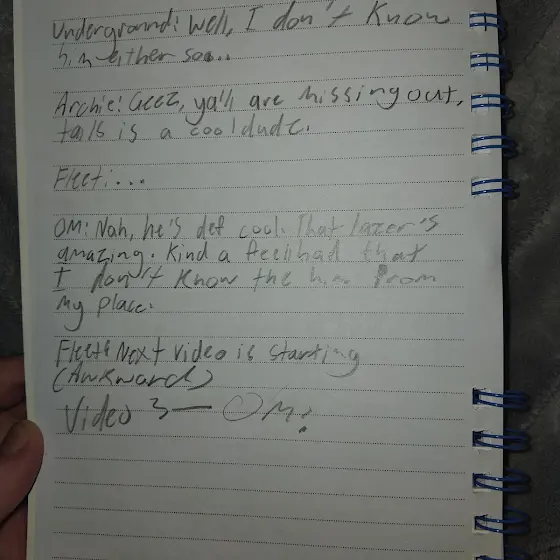 Underground: Well, I don't Know
him either soo..
Archie: Geez, ya'll are missing out,
tails is a cool dude.
Fleet: ...
OM: Nah, he's def cool. That lazer's
amazing. Kind a feel bad that
I don't Know the him from
My place.
Fleet: Next video is starting
(Awkward)
Video 3 — OM: